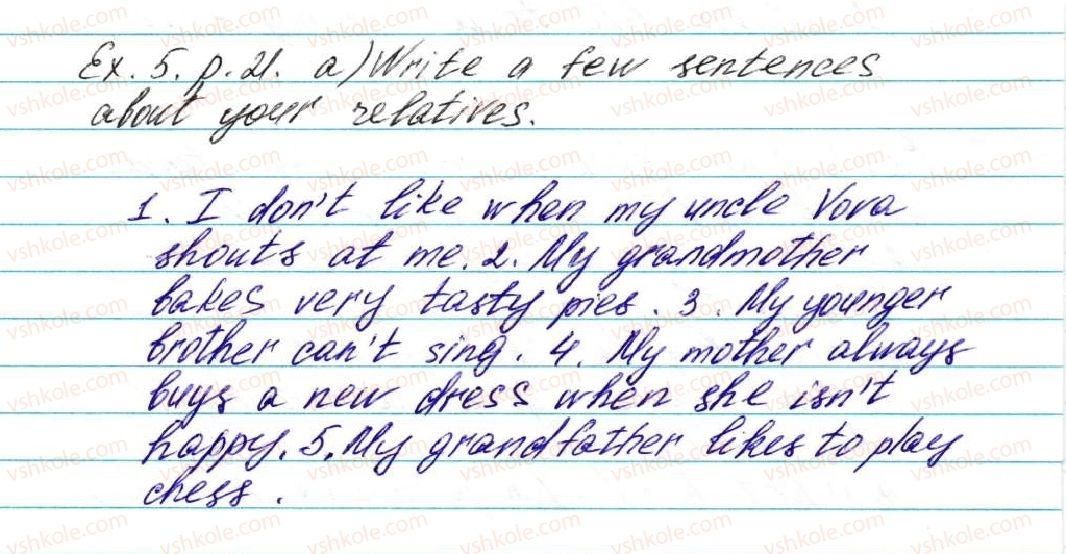 Ex. 5. p. 21. a) Write a few sentences
about your relatives.
1. I don't like when my uncle Vova
shouts at me. 2. My grandmother
bakes very tasty pies. 3. My younger
brother can't sing. 4. My mother always
buys a new dress when she isn't
happy. 5. My grandfather likes to play
chess.